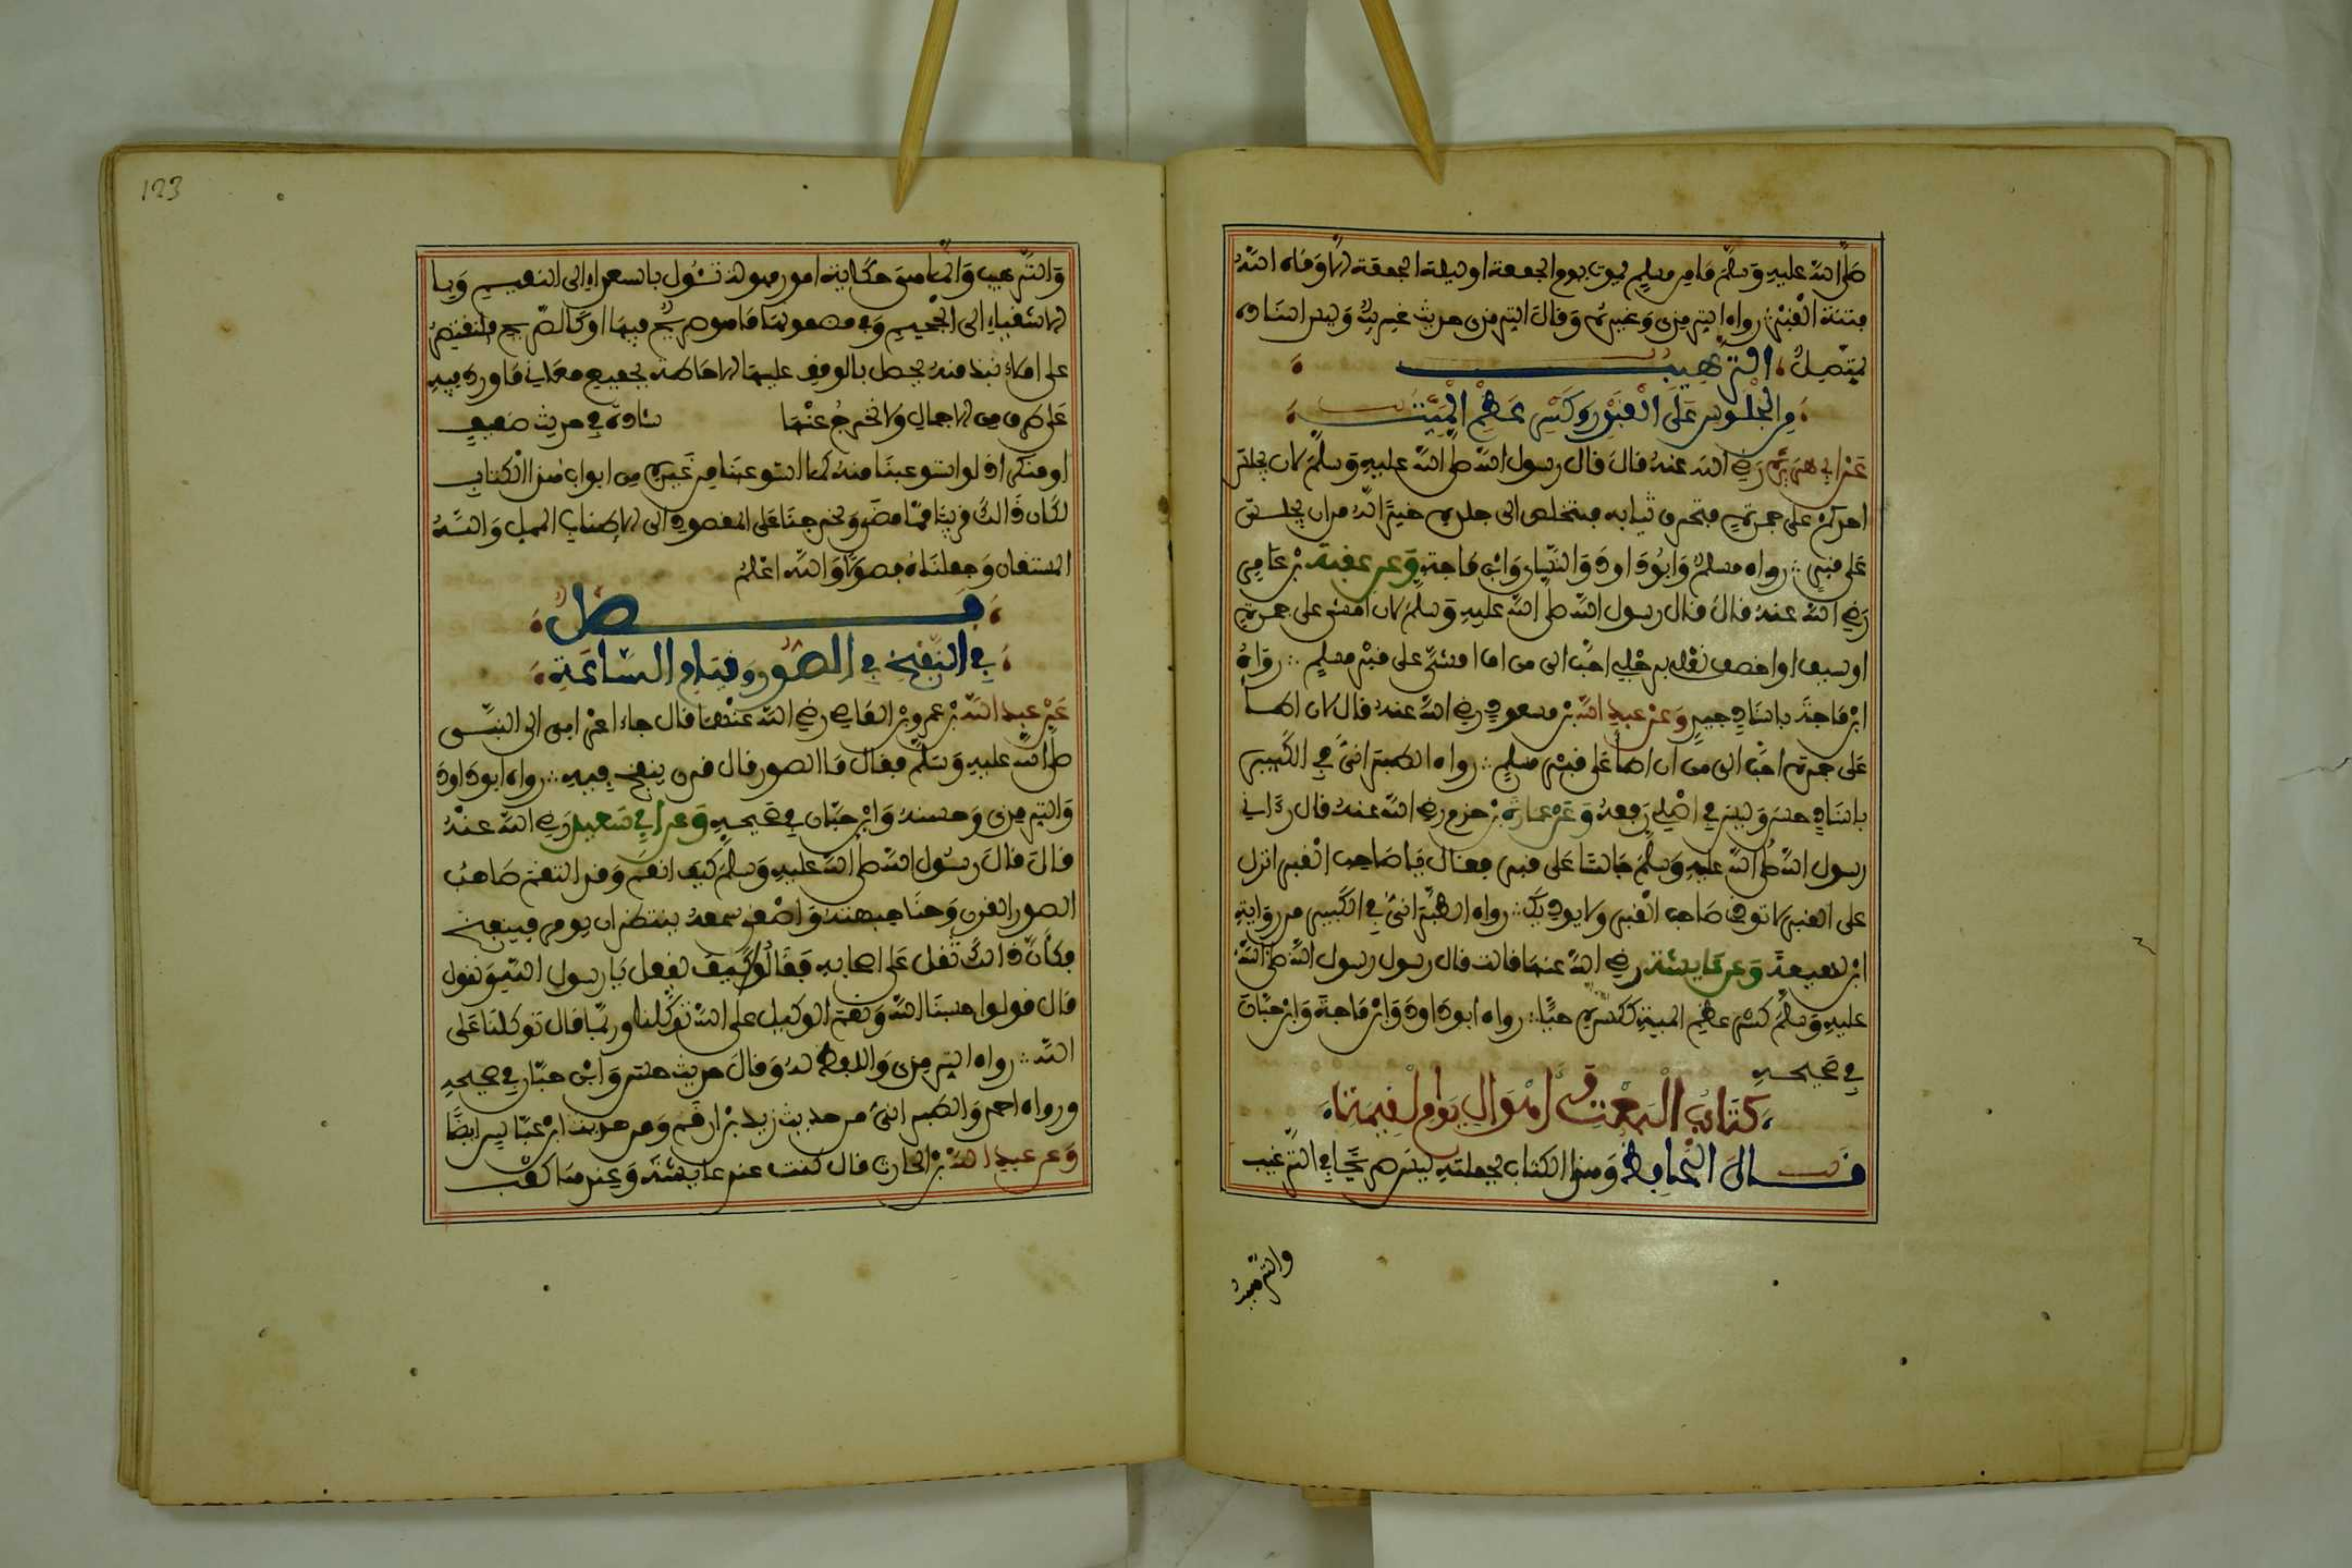 صلى الله عليه وسلم ما من مسلم يموت يوم الجمعة او ليلة الجمعة الا وقاه الله
فتنة القبر رواه الترمذي وغيره وقال الترمذي حديث غريب وليس اسناده
بمتصل الترهيب
من الجلوس على القبور وكسر عظم الميت
عن ابي هريرة رضي الله عنه قال قال رسول الله صلى الله عليه وسلم لان يجلس
احدكم على جمرة فتحرق ثيابه فتخلص الى جلده خير له من ان يجلس
على قبر رواه مسلم وابو داود والنسائي وابن ماجة وعن عقبة بن عامر
رضي الله عنه قال قال رسول الله صلى الله عليه وسلم لان امشي على جمرة
او سيف او اخصف نعلي برجلي احب الي من ان امشي على قبر مسلم رواه
ابن ماجة باسناد جيد وعن عبد الله بن مسعود رضي الله عنه قال لان اطا
على جمرة احب الي من ان اطا على قبر مسلم رواه الطبراني في الكبير
باسناد حسن وليس في اصلي رفعه وعن عمارة بن حزم رضي الله عنه قال رءاني
رسول الله صلى الله عليه وسلم جالسا على قبر فقال يا صاحب القبر انزل
على القبر لا توذ صاحب القبر ولا يوذيك رواه الطبراني في الكبير من رواية
ابن لهيعة وعن عايشة رضي الله عنها قالت قال رسول رسول الله صلى الله
عليه وسلم كسر عظم الميت ككسره حيا رواه ابو داود وابن ماجة وابن حبان
في صحيحه
كتاب البعث واهوال يوم القيمة
قال الحافظ وهذا الكتاب بجملته ليس صريحا في الترغيب
والترهيب
123
والترهيب وانما هو حكاية امور مهولة تئول بالسعداء الى النعيم وبا
لاشقياء الى الجحيم وفي مضمونها ما هو صريح فيها او كالصريح فلنقتصر
على املاء نبذ منه يحصل بالوقوف عليها الاحاطة بجميع معاني ما ورد فيه
على طرف من الاجمال ولا يخرج عنها شاذة في حديث ضعيف
او منكر اذ لو استوعبنا منه كما استوعبنا من غيره من ابواب هذا الكتاب
لكان ذالك قريبا مما مضى ولخرجنا على المقصود الى الاطناب الممل والله
المستعان وجعلناه فصولا والله اعلم
فصل
في النفخ في الصور وقيام الساعة
عن عبد الله بن عمرو بن العاص رضي الله عنهما قال جاء اعرابي الى النبي
صلى الله عليه وسلم فقال ما الصور قال قرن ينفخ فيه رواه ابو داود
والترمذي وحسنه وابن حبان في صحيحه وعن ابي سعيد رضي الله عنه
قال قال رسول الله صلى الله عليه وسلم كيف انعم وقد التقم صاحب
الصور القرن وحنا جبهته واصغى سمعه ينتظر ان يومر فينفخ
فكأن ذالك ثقل على اصحابه فقالوا كيف نفعل يا رسول الله ونقول
قال قولوا حسبنا الله ونعم الوكيل على الله توكلنا وربما قال توكلنا على
الله رواه الترمذي واللفظ له وقال حديث حسن وابن حبان في صحيحه
ورواه احمد والطبراني من حديث زيد بن ارقم ومن حديث ابن عباس ايضا
وعن عبد الله بن الحارث قال كنت عند عايشة وعندها كعب